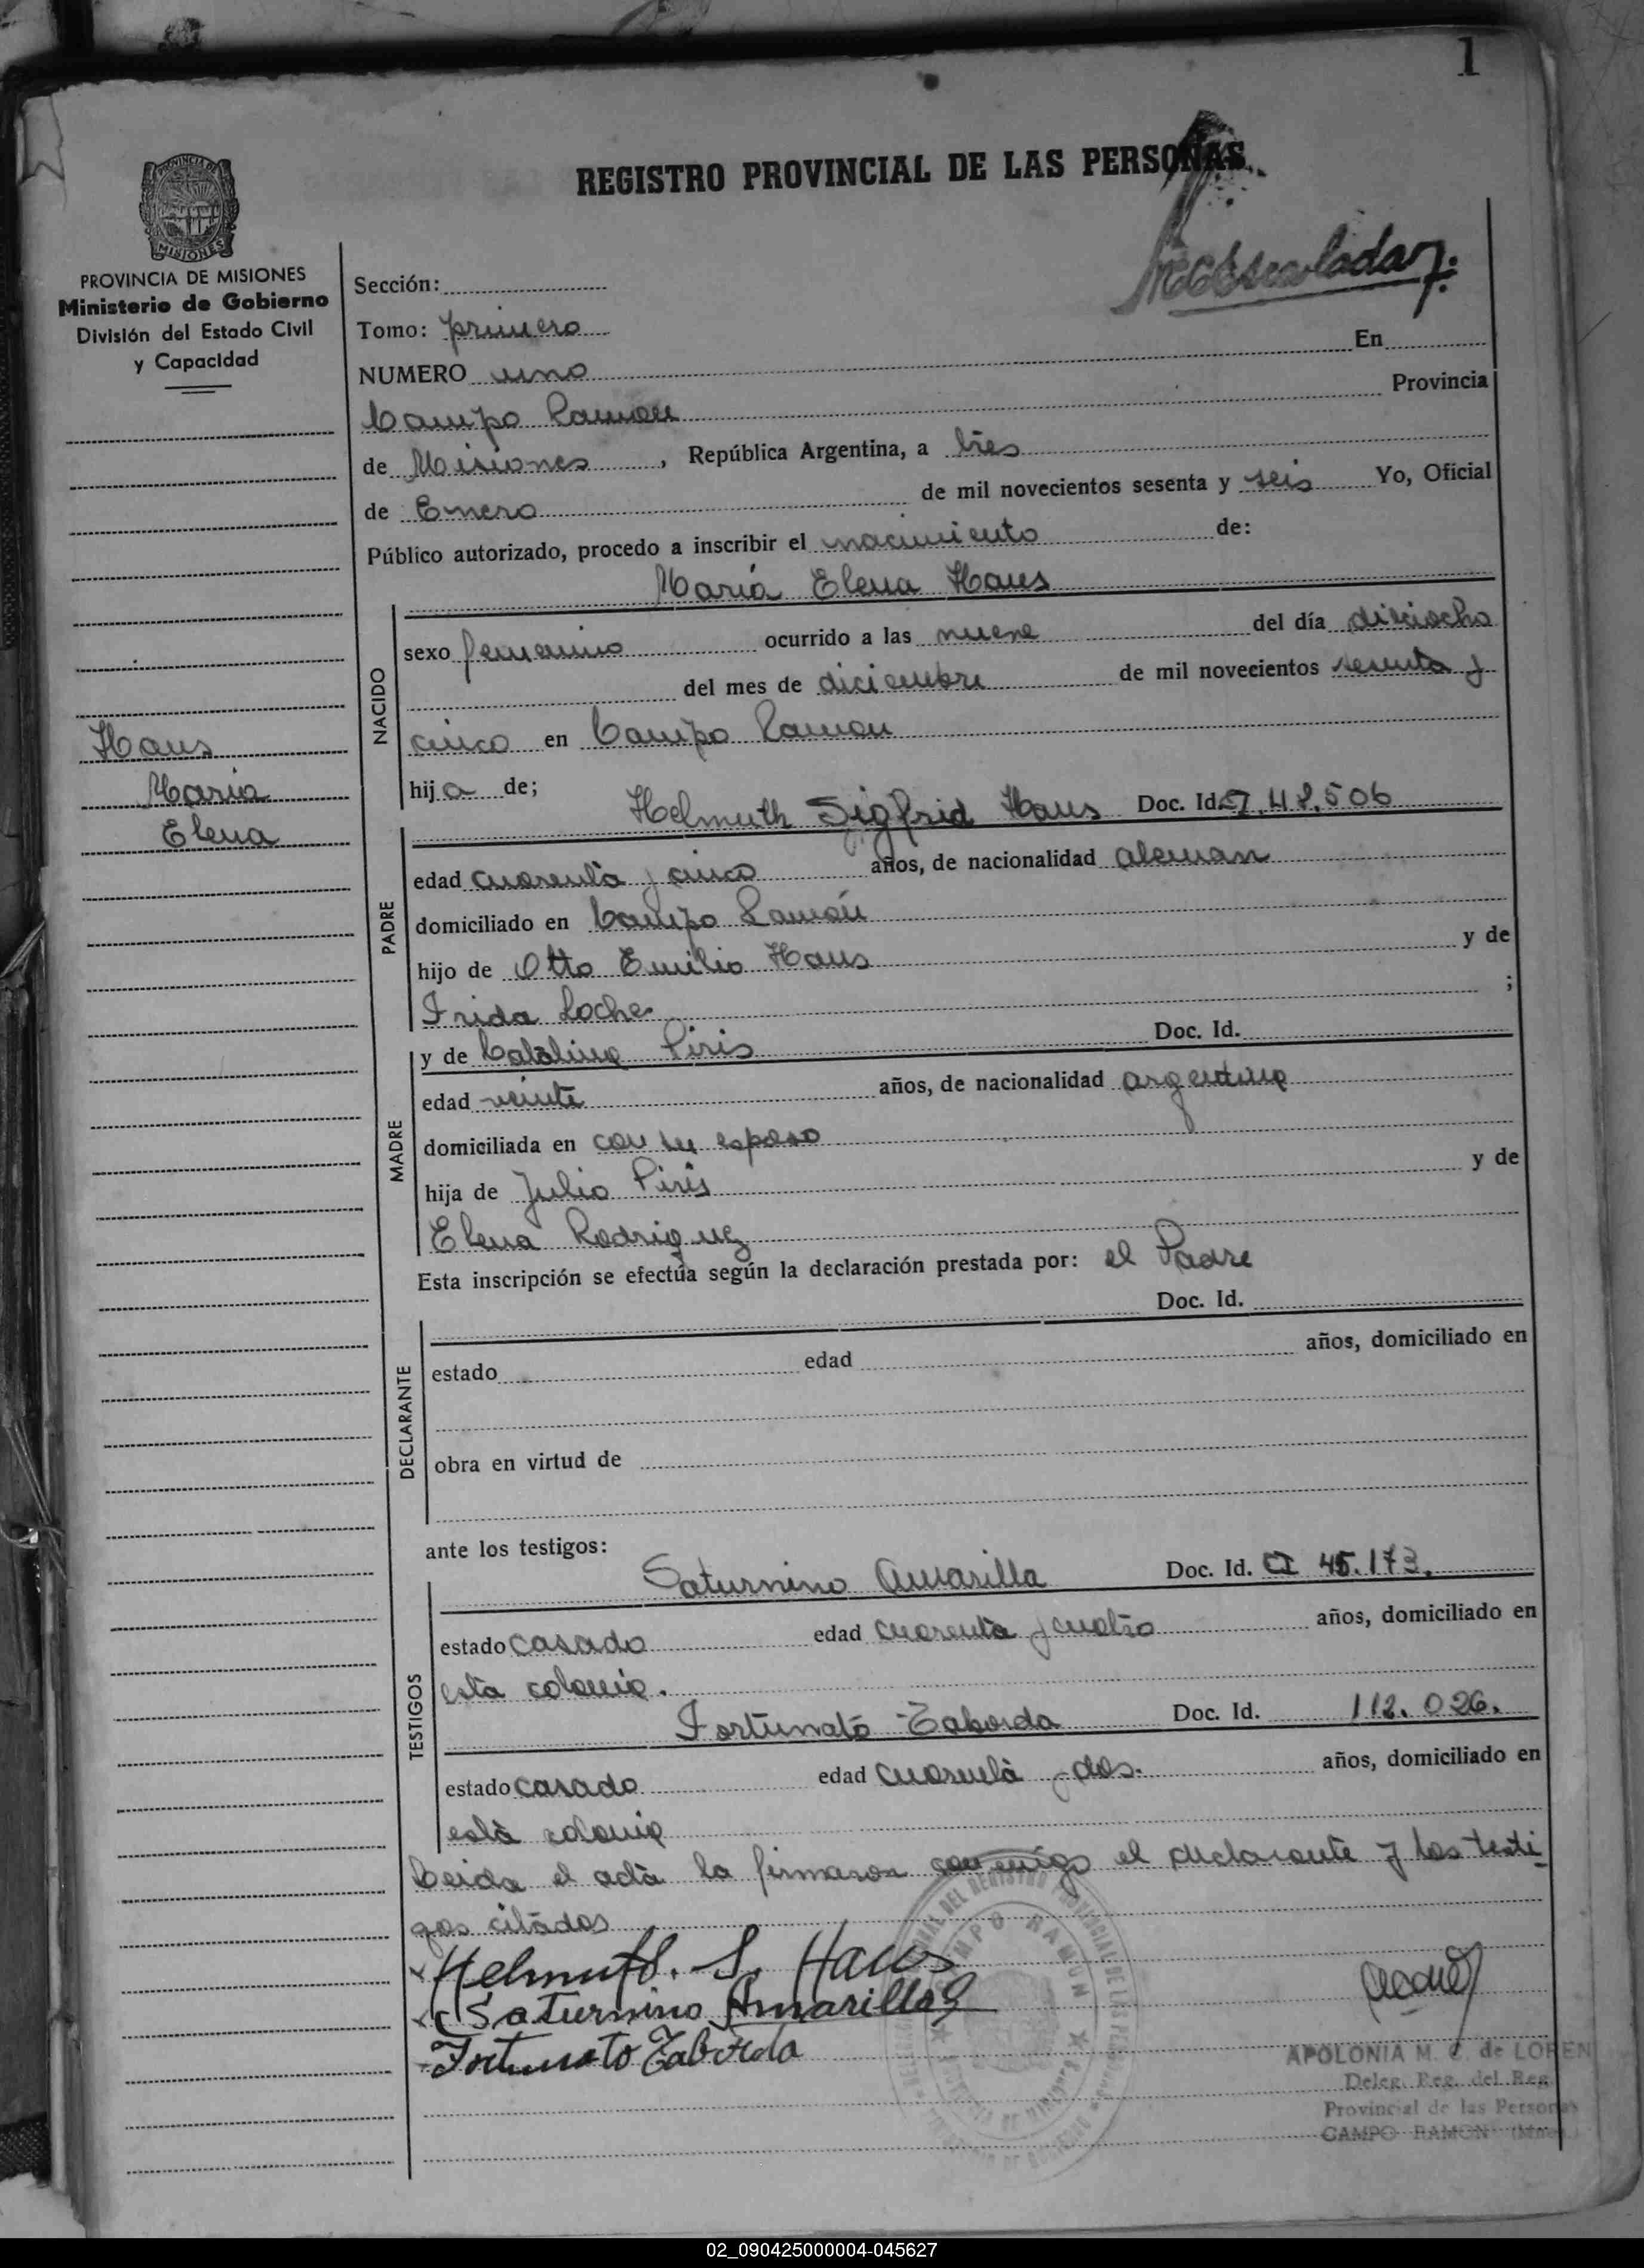 1
REGISTRO PROVINCIAL DE LAS PERSONAS
PROVINCIA DE MISIONES
Ministerio de Gobierno
División del Estado Civil
y Capacidad
Sección:
Tomo: primero
NUMERO uno En
Campo Ramon Provincia
de Misiones, República Argentina, a tres
de Enero de mil novecientos sesenta y seis Yo, Oficial
Público autorizado, procedo a inscribir el nacimiento de:
Maria Elena Haus
NACIDO
sexo femenino ocurrido a las nueve del día dieciocho
del mes de diciembre de mil novecientos sesenta y
cinco en Campo Ramon
Haus
Maria
Elena
hija de;
Helmuth Sigfrid Haus Doc. Id. CI. 48.506
PADRE
edad cuarenta y cinco años, de nacionalidad aleman
domiciliado en Campo Ramón
hijo de Otto Emilio Haus y de
Frida Loche ;
y de Catalina Piris Doc. Id.
MADRE
edad veinte años, de nacionalidad argentina
domiciliada en con su esposo
hija de Julio Piris y de
Elena Rodriguez
Esta inscripción se efectúa según la declaración prestada por: el Padre
Doc. Id.
DECLARANTE
estado edad años, domiciliado en
obra en virtud de
ante los testigos:
Saturnino Amarilla Doc. Id. CI 45.173.
TESTIGOS
estado casado edad cuarenta y cuatro años, domiciliado en
esta colonia.
Fortunato Taborda Doc. Id. 112.026.
estado casado edad cuarenta y dos. años, domiciliado en
esta colonia
Leida el acta la firmaron conmigo el declarante y los testi
gos citados
Helmuth. S. Haus
Saturnino Amarilla
Fortunato Taborda
CAMPO RAMON
APOLONIA M. C. de LOREN
Deleg. Reg. del Reg.
Provincial de las Personas
CAMPO RAMON (Mnes.)
02_090425000004-045627